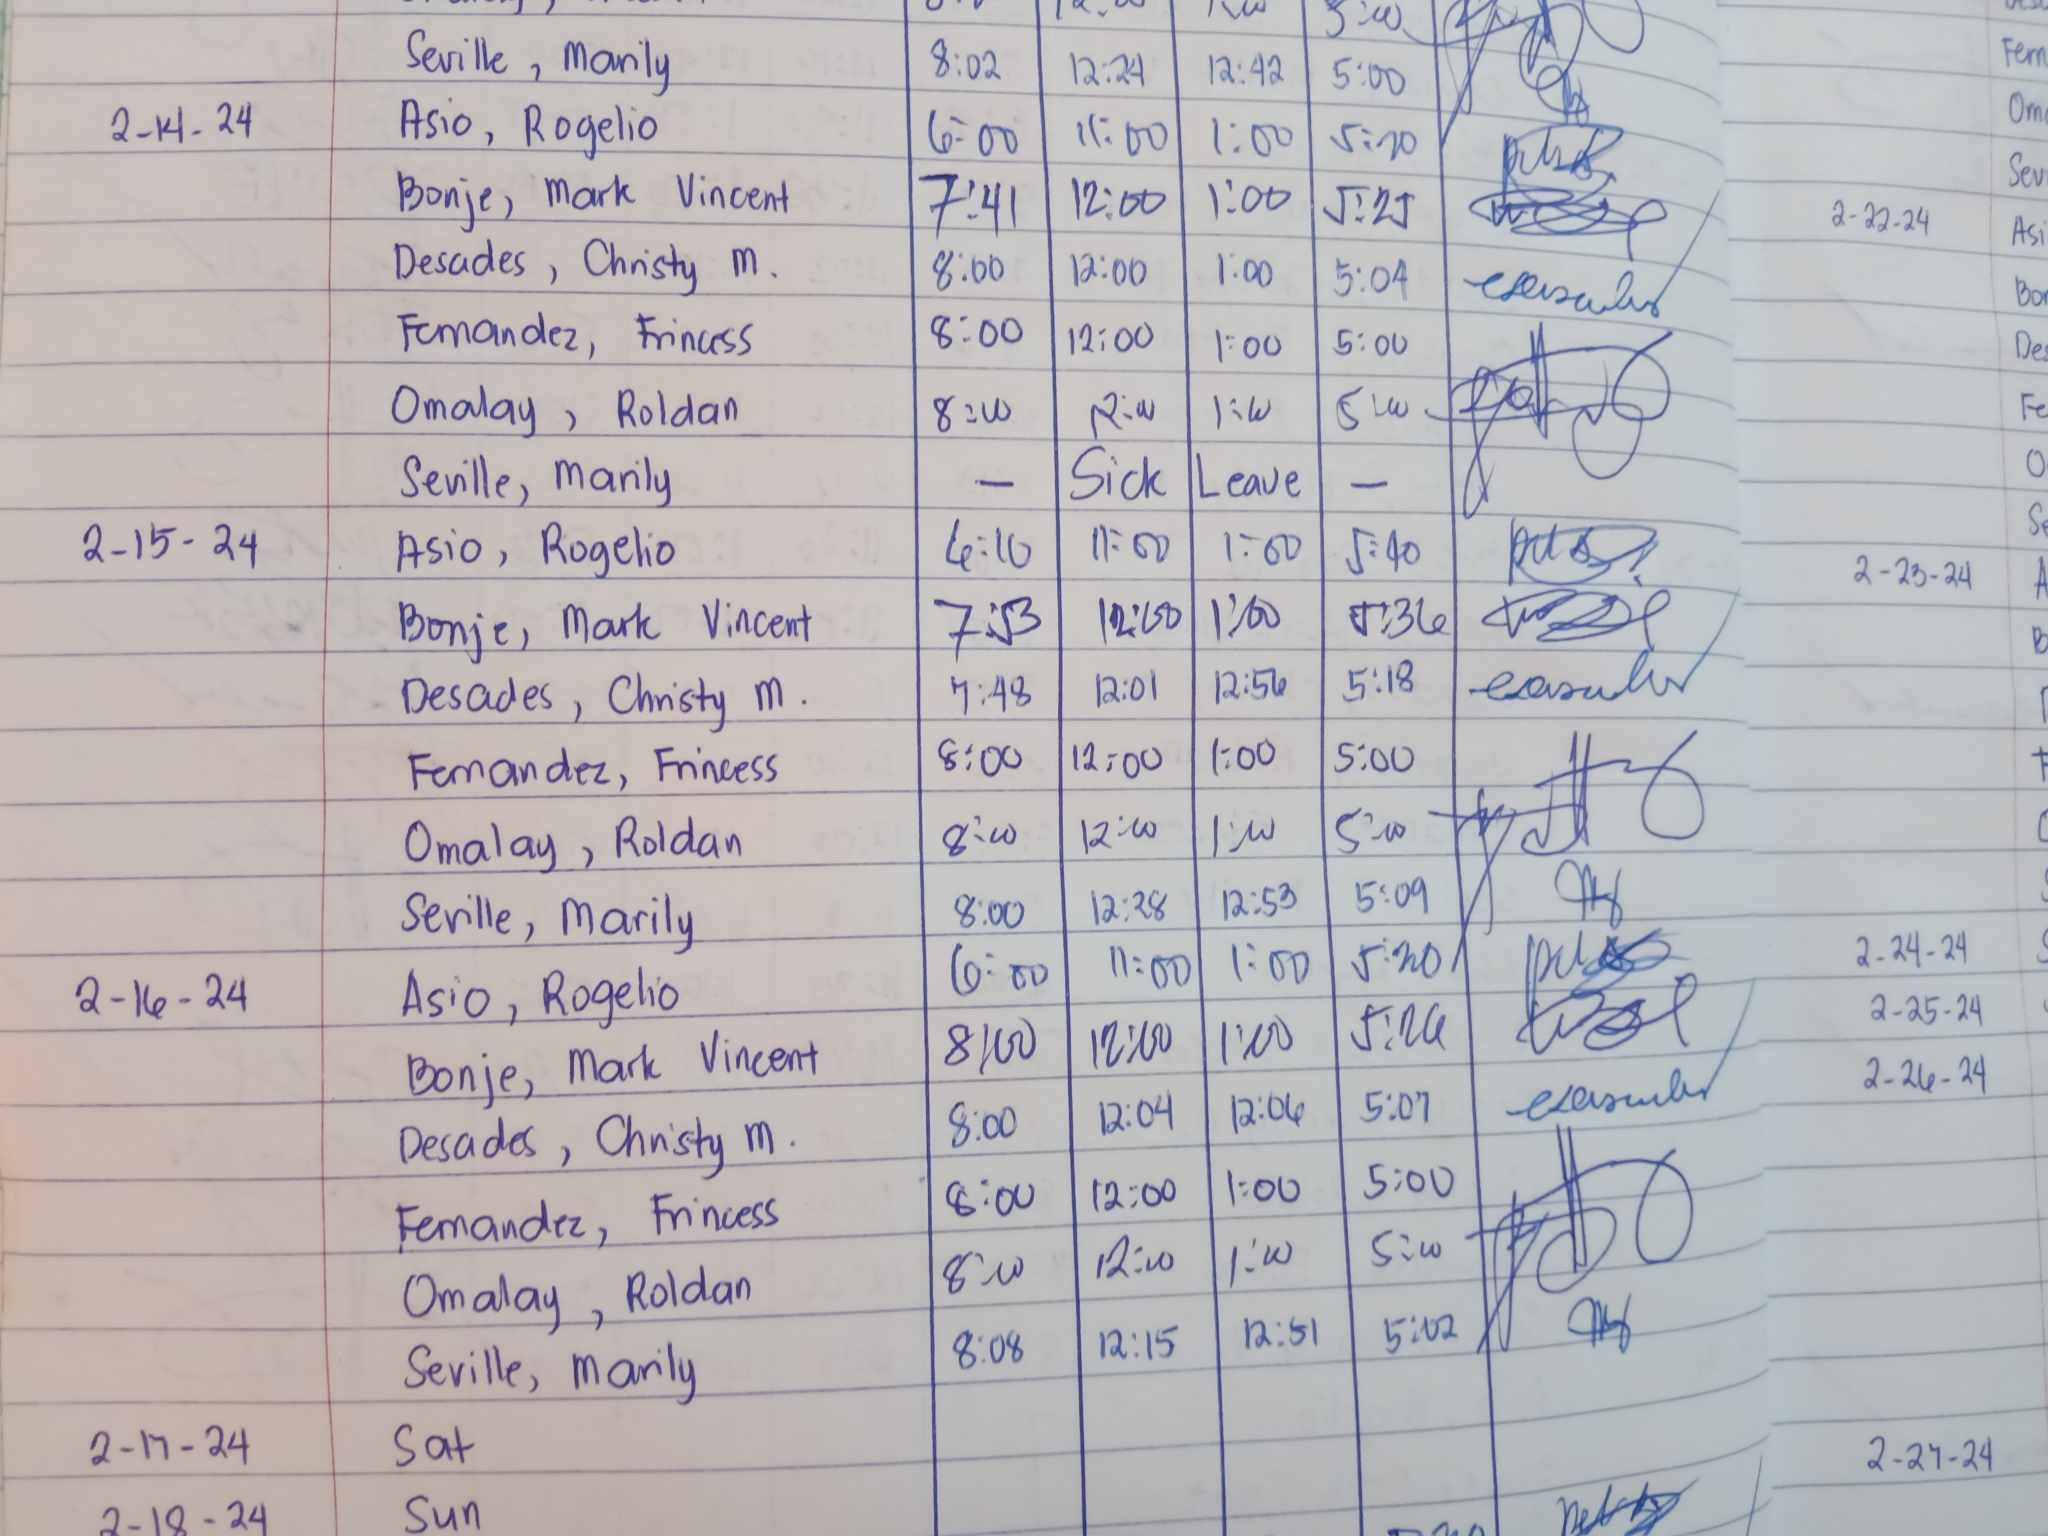 Seville, Marily 8:02 12:24 12:42 5:00
2-14-24 Asio, Rogelio 6:00 11:00 1:00 5:20
Bonje, Mark Vincent 7:41 12:00 1:00 5:25
Desades, Christy M. 8:00 12:00 1:00 5:04
Fernandez, Frincess 8:00 12:00 1:00 5:00
Omalay, Roldan 8:00 12:00 1:00 5:00
Seville, Marily — Sick Leave —
2-15-24 Asio, Rogelio 6:10 11:00 1:00 5:40
Bonje, Mark Vincent 7:53 12:00 1:00 5:36
Desades, Christy M. 7:48 12:01 12:56 5:18
Fernandez, Frincess 8:00 12:00 1:00 5:00
Omalay, Roldan 8:00 12:00 1:00 5:00
Seville, Marily 8:00 12:28 12:53 5:09
2-16-24 Asio, Rogelio 6:00 11:00 1:00 5:20
Bonje, Mark Vincent 8:00 12:00 1:00 5:26
Desades, Christy M. 8:00 12:04 12:06 5:07
Fernandez, Frincess 8:00 12:00 1:00 5:00
Omalay, Roldan 8:00 12:00 1:00 5:00
Seville, Marily 8:08 12:15 12:51 5:02
2-17-24 Sat
2-18-24 Sun
2-22-24
2-23-24
2-24-24
2-25-24
2-26-24
2-27-24